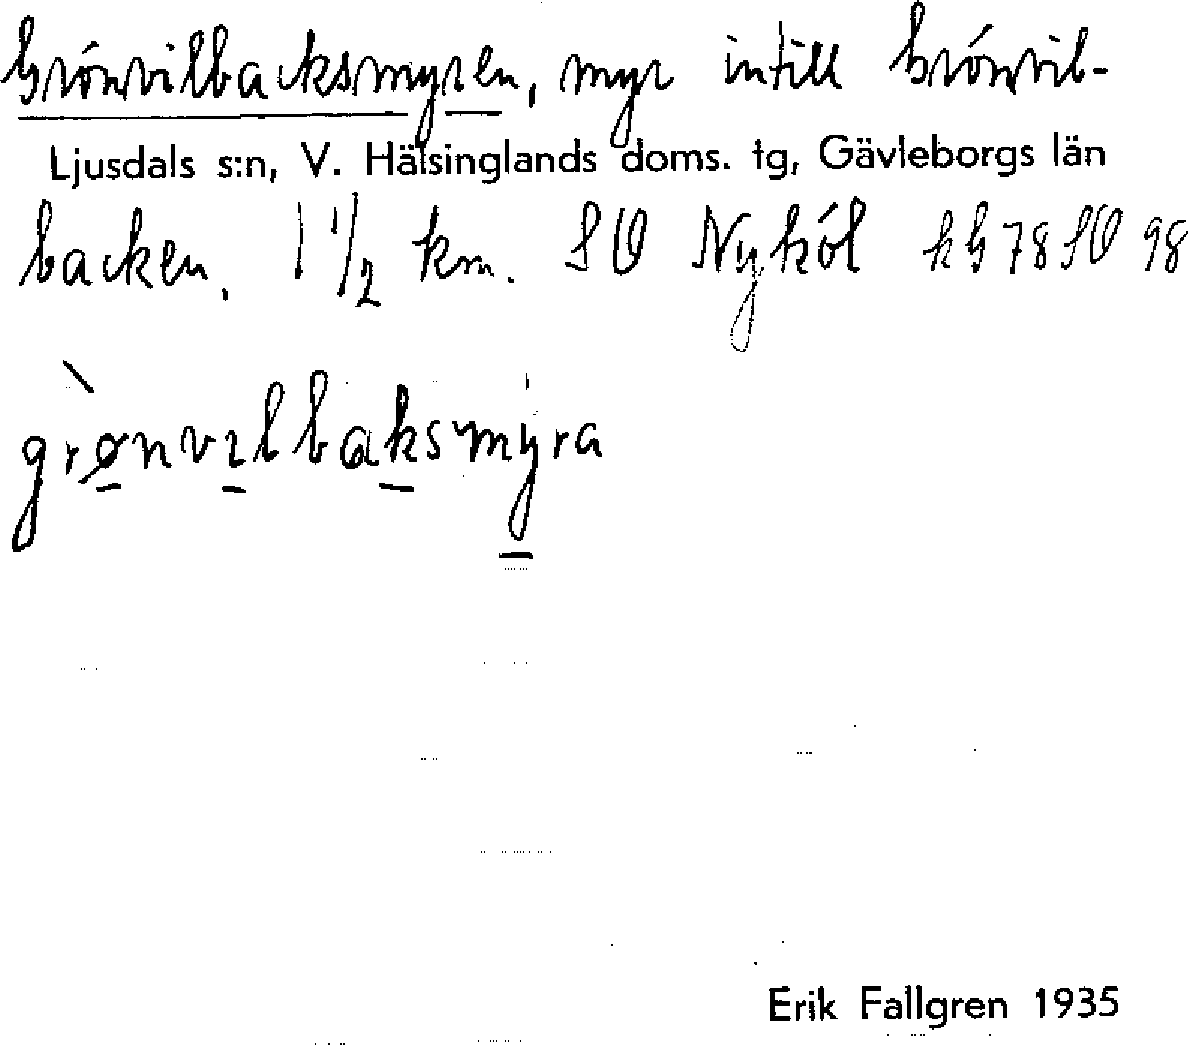 Grönvilbacksmyren, myr intill Grönvil-
Ljusdals s:n, V. Hälsinglands doms. tg, Gävleborgs län
backen. 1 1/2 km. SO Nyköl kG 78 SO 98
grønvɩlbaksmyra
Erik Fallgren 1935